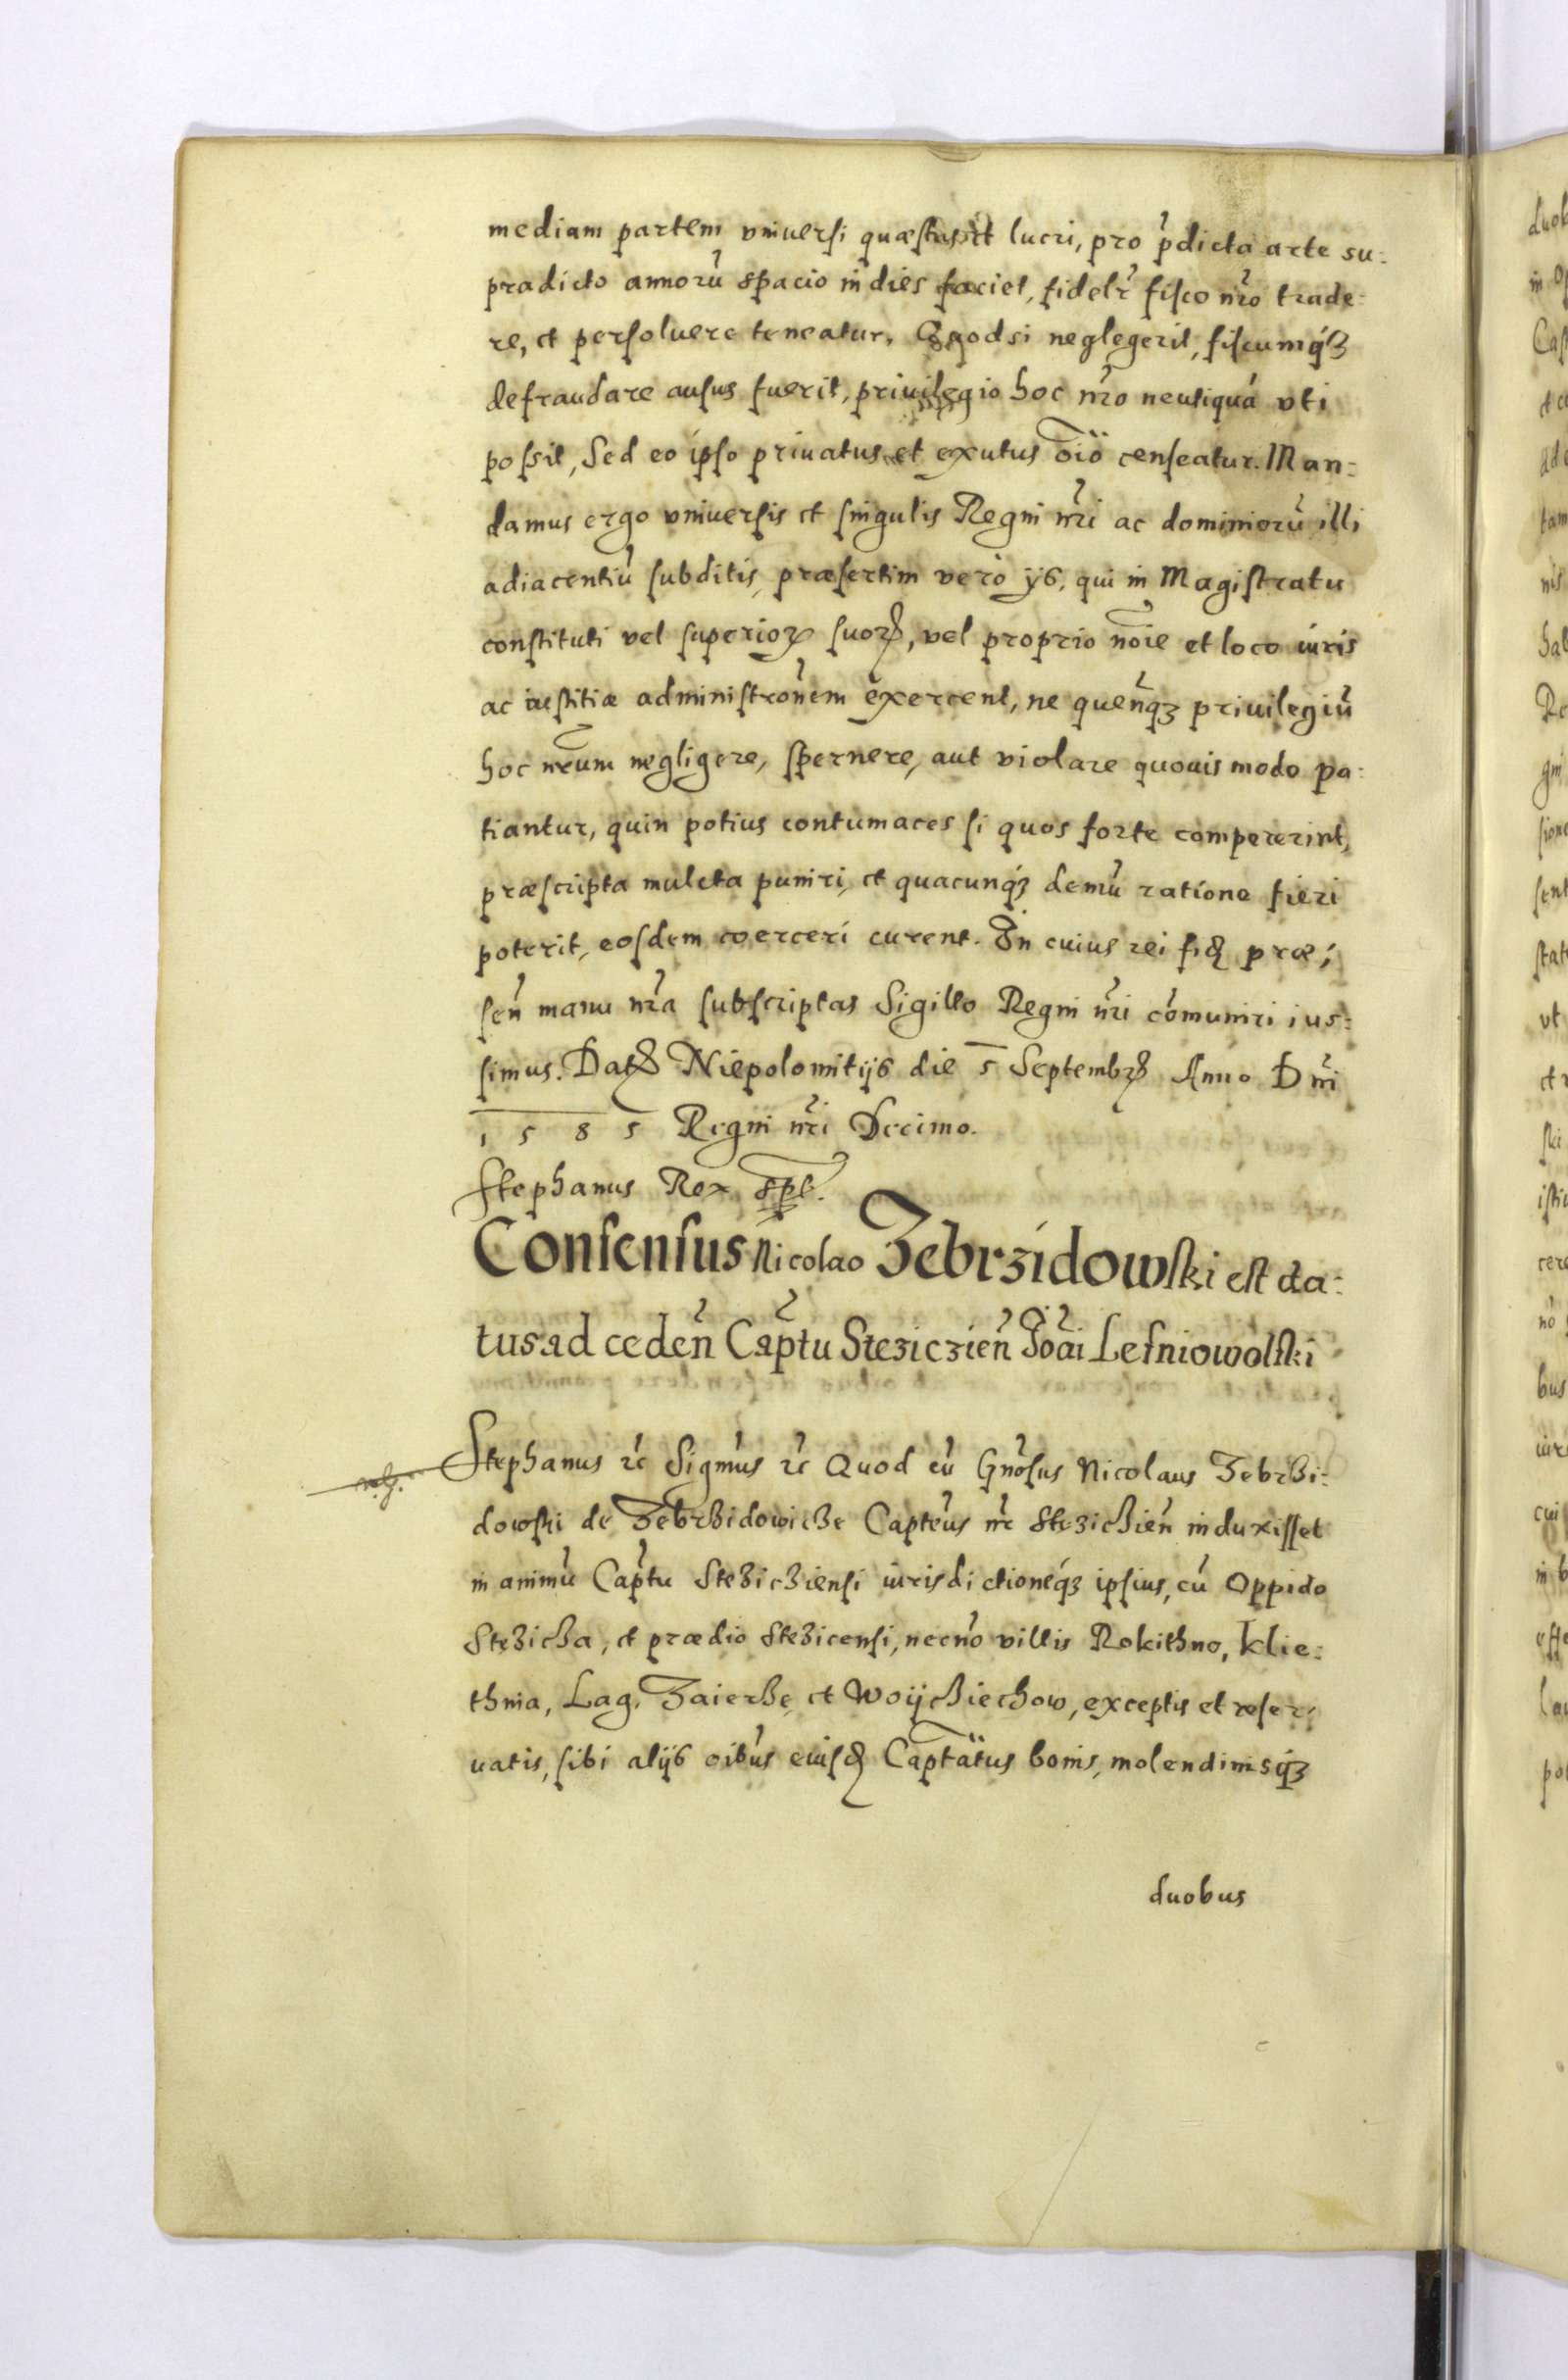 mediam partem vniuersi quæstus et lucri, pro p̃dicta arte su:
pradicto annorũ spacio in dies faciet, fidelr̃ fisco nr̃o trade:
re, et persoluere teneatur. Quodsi neglegerit, fiscumq́ꝫ
defraudare ausus fuerit, priuilegio hoc nr̃o neutiquã vti
possit, Sed eo ipso priuatus et exutus õio censeatur. Man:
damus ergo vniuersis et singulis Regni nr̃i ac dominiorũ illi
adiacentiũ subditis, præsertim vero ijs, qui in Magistratu
constituti vel superioꝝ suoꝝ, vel proprio nõie et loco iuris
ac iustitiæ administrõnem exercent, ne quenq̃ꝫ priuilegiũ
hoc nr̃um negligere, spernere, aut violare quouis modo pa:
tiantur, quin potius contumaces si quos forte compererint,
præscripta mulcta puniri, et quacunq́ꝫ demũ ratione fieri
poterit, eosdem coerceri curent. In cuius rei fiḍ præ:
sen̄ manu nr̃a subscriptas Sigillo Regni nr̃i cõmuniri ius:
simus. Datꝭ Niepolomitijs die 5 Septembrꝭ Anno Dñi
1585 Regni nr̃i Decimo.
Stephanus Rex sp̃t.
Consensus Nicolao Zebrzidowski est da:
tus ad ceden̄ Cap̃tu Steziczien̄ Joãi Lesniowolski
Stephanus ꝛc̃ Sigm̃us ꝛc̃ Quod cũ Gnõsus Nicolaus Zebrzi:
dowski de Zebrzidowicze Captẽus nr̃ Steziczien̄ induxisset
in animũ Cap̃tu Stezicziensi iurisdictioneq́ꝫ ipsius, cũ Oppido
Stezicza, et prædio Stezicensi, necnõ villis Rokithno, Klie:
thnia, Lag, Zaierze, et Woijcziechow, exceptis et reser:
uatis, sibi alijs oib̃us eiusḍ Captãtus bonis, molendinisq́ꝫ
duobus